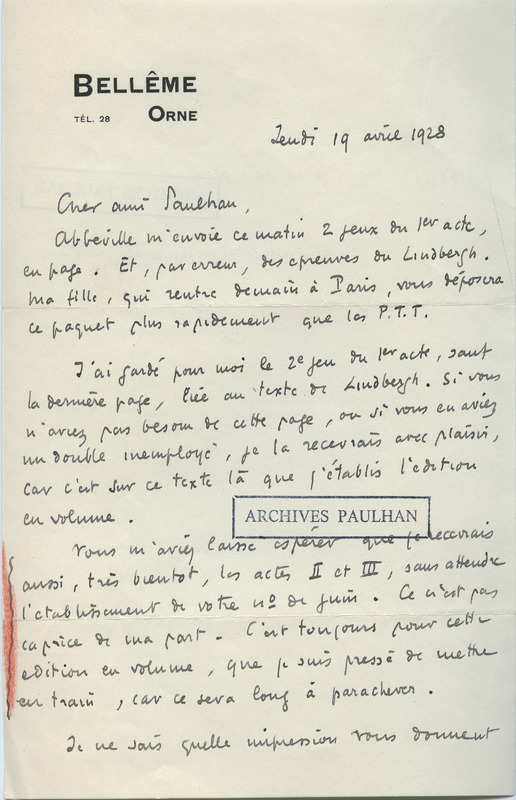 BELLÊME
TÉL. 28 ORNE
Jeudi 19 avril 1928
Cher ami Paulhan,
Abbeville m'envoie ce matin 2 jeux du 1er acte,
en page. Et, par erreur, des épreuves du Lindbergh.
Ma fille, qui rentre demain à Paris, vous déposera
ce paquet plus rapidement que les P.T.T.
J'ai gardé pour moi le 2e jeu du 1er acte, sauf
la dernière page, liée au texte de Lindbergh. Si vous
n'aviez pas besoin de cette page, ou si vous en aviez
un double inemployé, je la recevrais avec plaisir,
car c'est sur ce texte là que j'établis l'édition
en volume.
ARCHIVES PAULHAN
Vous m'aviez laissé espérer que je recevrais
aussi, très bientôt, les actes II et III, sans attendre
l'établissement de votre no de juin. Ce n'est pas
caprice de ma part. C'est toujours pour cette
édition en volume, que je suis pressé de mettre
en train, car ce sera long à parachever.
Je ne sais quelle impression vous donnent